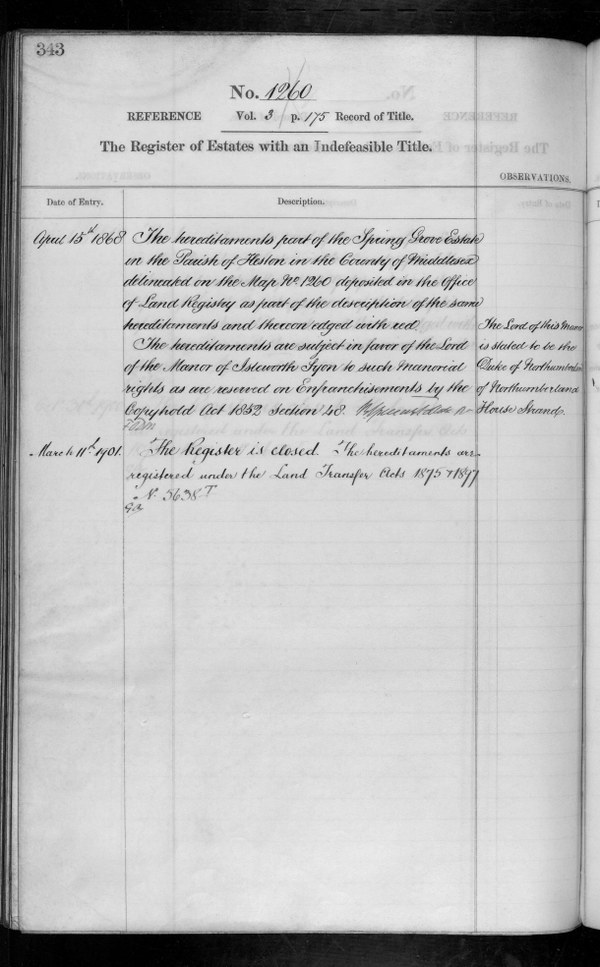 343
No. 1260
REFERENCE Vol. 3 p. 175 Record of Title.
The Register of Estates with an Indefeasible Title.
OBSERVATIONS.
Date of Entry.
Description.
April 15th 1868
The hereditaments part of the Spring Grove Estate
in the Parish of Heston in the County of Middlesex
delineated on the Map No. 1260 deposited in the Office
of Land Registry as part of the description of the same
hereditaments and thereon edged with red.
The hereditaments are subject in favor of the Lord
of the Manor of Isleworth Syon to such manorial
rights as are reserved on Enfranchisements by the
Copyhold Act 1852 Section 48.
The Lord of this Manor
is stated to be the
Duke of Northumberland
of Northumberland
House Strand.
March 11th 1901.
The Register is closed. The hereditaments are
registered under the Land Transfer Acts 1875 & 1897
No. 5638